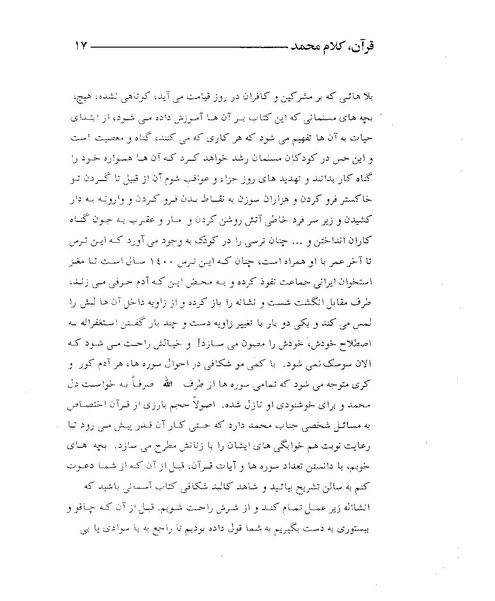 قرآن، کلام محمد ——— ۱۷
بلا هائی که بر مشرکین و کافران در روز قیامت می آید، کوتاهی نشده، هیچ،
بچه های مسلمانی که این کتاب بر آن ها آموزش داده می شود، از ابتدای
حیات به آن ها تفهیم می شود که هر کاری که می کنند، گناه و معصیت است
و این حس در کودکان مسلمان رشد خواهد کرد که آن ها همواره خود را
گناه کار بدانند و تهدید های روز جزاء و عواقب شوم آن از قبیل تا گردن تو
خاکستر فرو کردن و هزاران سوزن به نقاط بدن فرو کردن و وارونه به دار
کشیدن و زیر سر فرد خاطی آتش روشن کردن و مار و عقرب به جون گناه
کاران انداختن و ... چنان ترسی را در کودک به وجود می آورد که این ترس
تا آخر عمر با او همراه است، چنان که این ترس ۱۴۰۰ سال است تا مغز
استخوان ایرانی جماعت نفوذ کرده و به محض این که آدم حرفی می زند،
طرف مقابل انگشت شست و نشانه را باز کرده و از زاویه داخل آن ها لبش را
لمس می کند و یکی دو بار با تغییر زاویه دست و چند بار گفتن استغفراله به
اصطلاح خودش، خودش را مصون می سازد! و خیالش راحت می شود که
الان سوسک نمی شود. با کمی مو شکافی در احوال سوره ها، هر آدم کور و
کری متوجه می شود که تمامی سوره ها از طرف الله صرفاً به خواست دل
محمد و برای خوشنودی او نازل شده. اصولاً حجم بارزی از قرآن اختصاص
به مسائل شخصی جناب محمد دارد که حتی کار آن قدر پیش می رود تا
رعایت نوبت هم خوابگی های ایشان را با زنانش مطرح می سازد. بچه های
خوبم، با دانستن تعداد سوره ها و آیات قرآن، قبل از آن که از شما دعوت
کنم به سالن تشریح بیائید و شاهد کالبد شکافی کتاب آسمانی باشید که
انشااله زیر عمل تمام کند و از شرش راحت شویم. قبل از آن که چاقو و
بیستوری به دست بگیریم به شما قول داده بودیم تا راجع به با سوادی یا بی